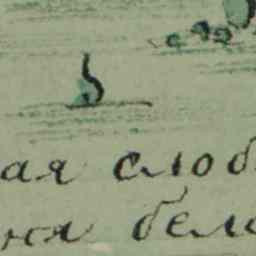 ая слоб
ня бело